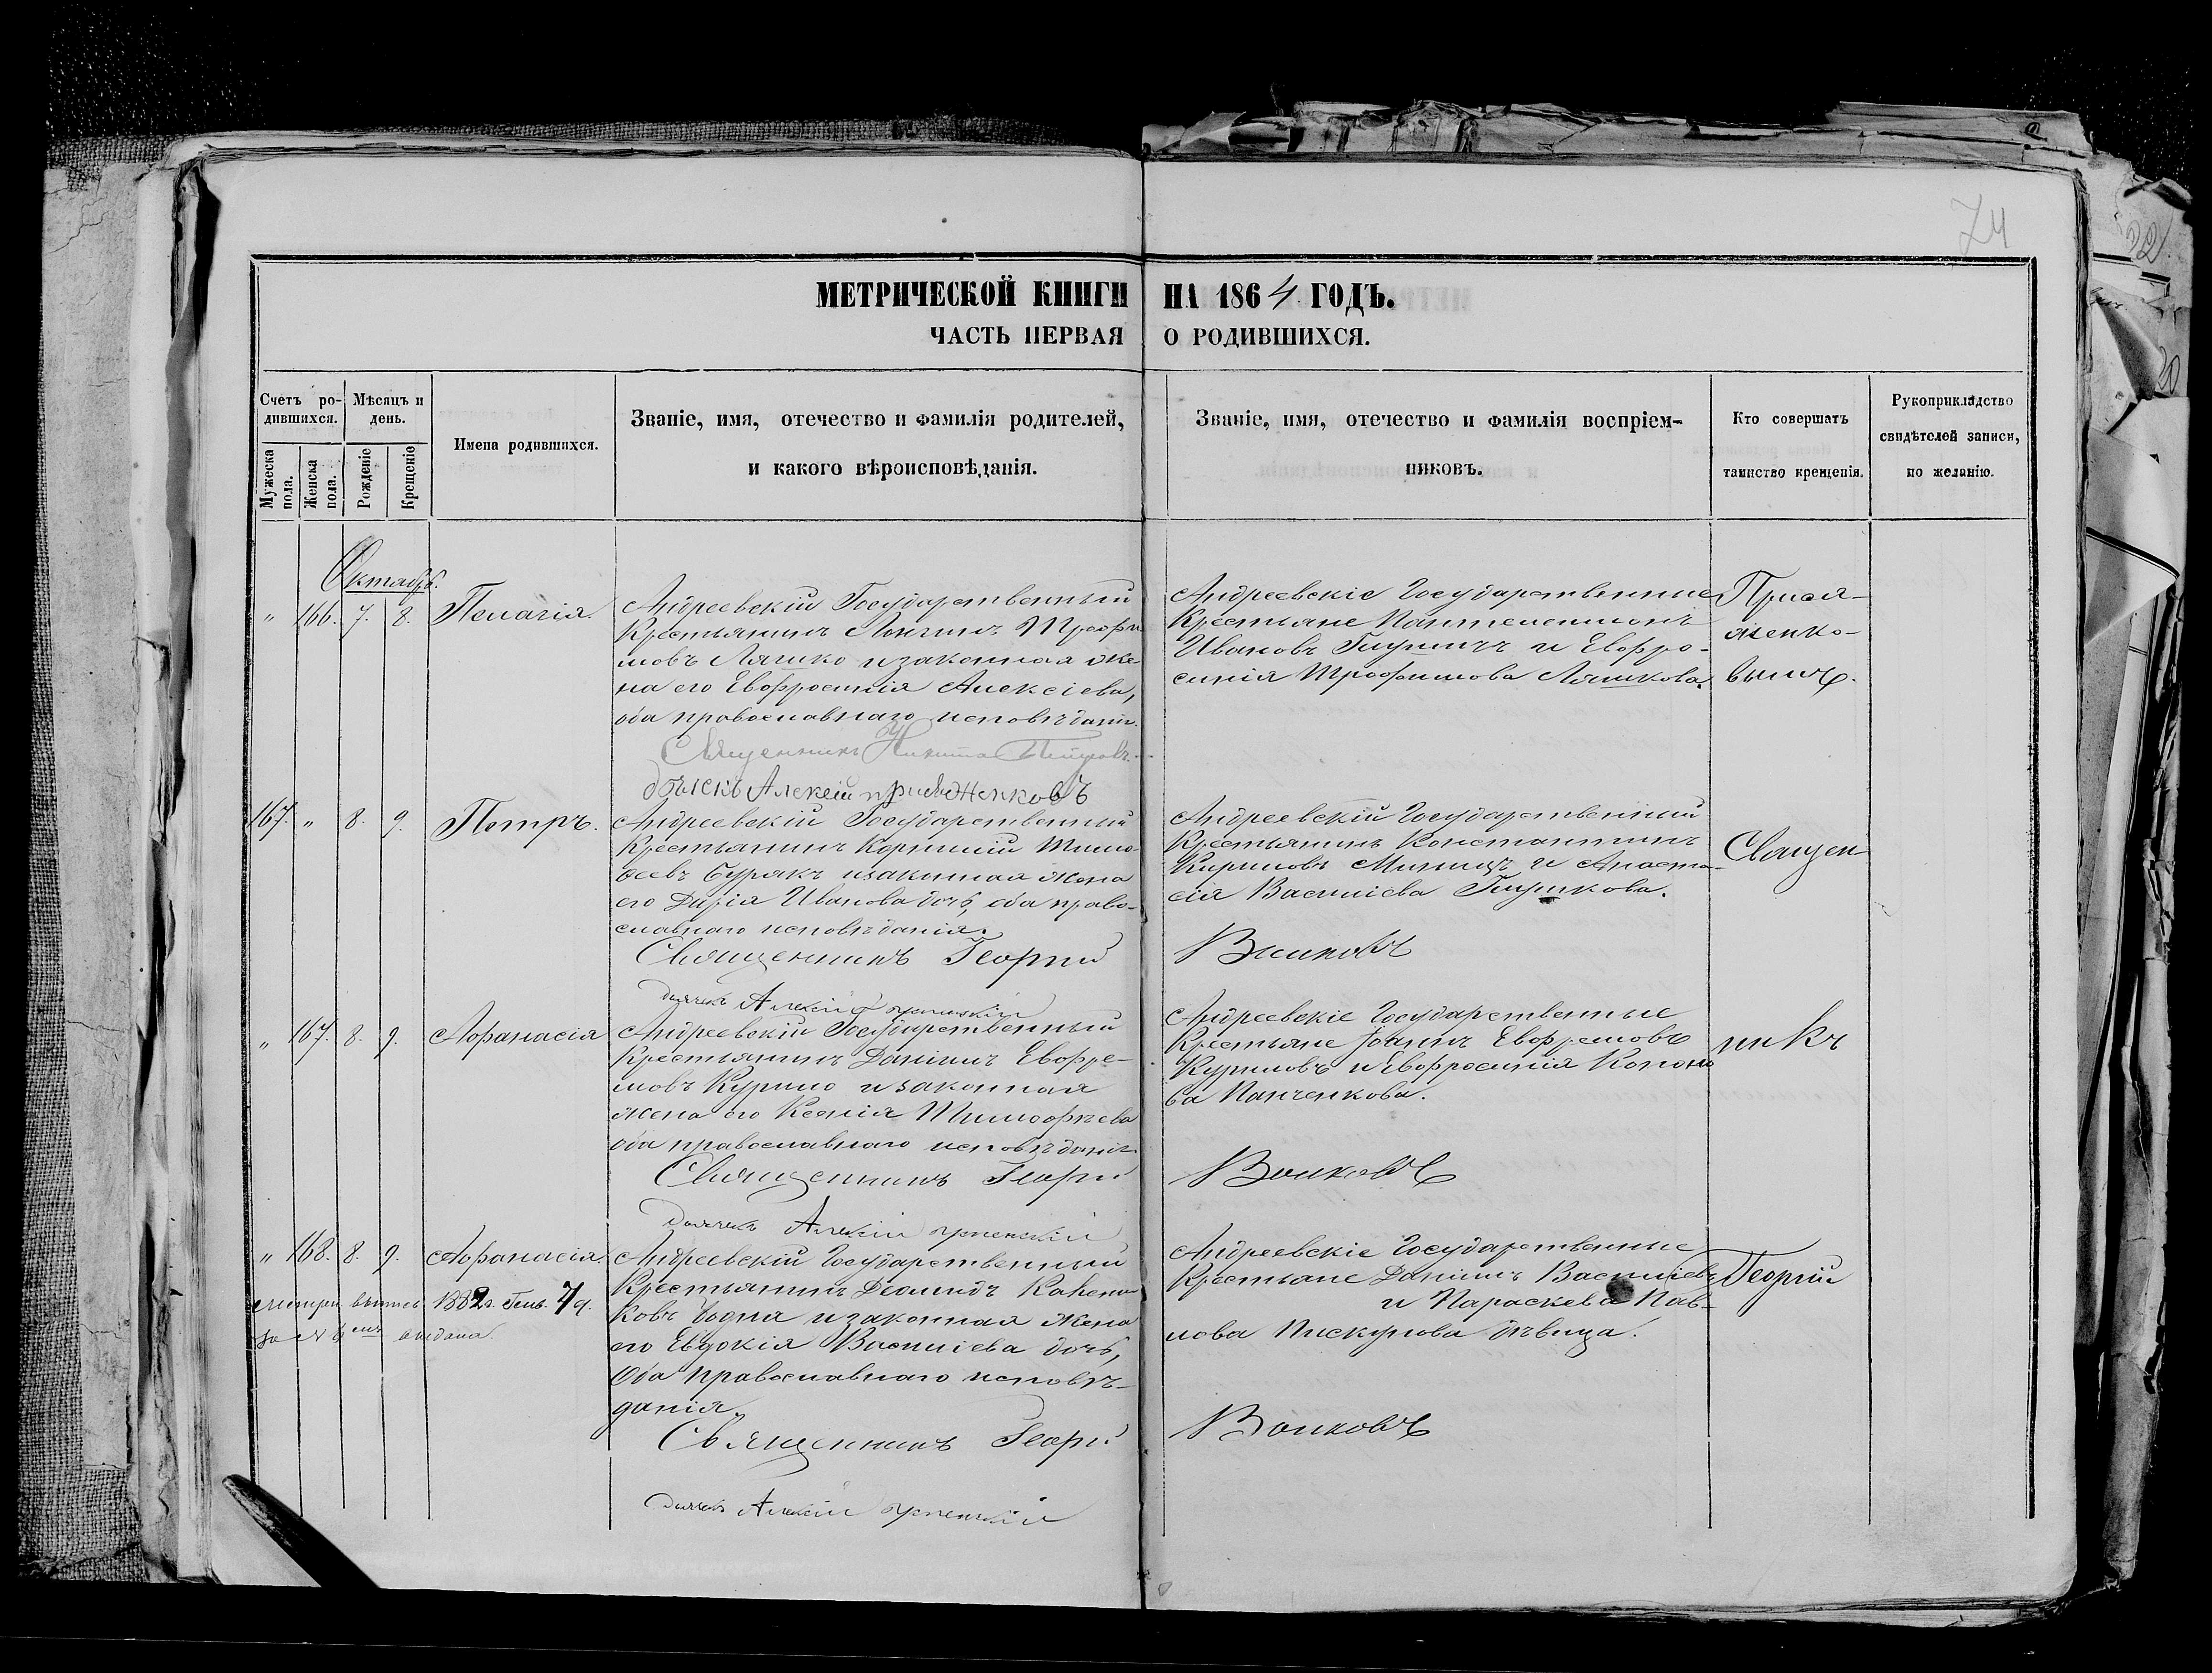 74
МЕТРИЧЕСКОЙ КНИГИ НА 1864 ГОДЪ.
ЧАСТЬ ПЕРВАЯ О РОДИВШИХСЯ.
Счетъ ро-
дившихся.
Мужеска пола.
Женска пола.
Мѣсяцъ и
день.
Рожденіе
Крещеніе
Имена родившихся.
Званіе, имя, отечество и фамилія родителей,
и какого вѣроисповѣданія.
Званіе, имя, отечество и фамилія воспріем-
никовъ.
Кто совершатъ
таинство крещенія.
Рукоприкладство
свидѣтелей записи,
по желанію.
Октябрь.
" 166. 7. 8. Пелагія.
Андреевскій Государственный
Крестьянинъ Лонгинъ Трофи
мовъ Ляшко и законная же-
на его Евфросинія Алексіева,
оба православнаго исповѣданія.
Священникъ Никита
Алексій
Андреевскіе Государственные
Крестьяне Пантелеимонъ
Ивановъ и Евфро-
синія Трофимова Ляшкова.
167. " 8. 9. Петръ.
Андреевскій Государственный
Крестьянинъ Корнилій Тимо-
ѳеевъ Бурякъ и законная жена
его Дарія Иванова дочь, оба право-
славнаго исповѣданія.
Священникъ Георгій Волковъ
Алексій
Андреевскій Государственный
Крестьянинъ Константинъ
Кириловъ и Анаста-
сія Василіева Глушкова.
" 167. 8. 9. Афанасія
Андреевскій Государственный
Крестьянинъ Даніилъ Евфре-
мовъ Курило и законная
жена его Ксенія Тимофѣева
оба православнаго исповѣданія.
Священникъ Георгій Волковъ
Дьячекъ Алексій
Андреевскіе Государственные
Крестьяне Іоаннъ Евфремовъ
Куриловъ и Евфросинія Кононо
ва Панченкова.
" 168. 8. 9. Афанасія.
выпись 1882 г. Генв. 7 д.
за № выдана.
Андреевскій Государственный
Крестьянинъ
ковъ и законная жена
его Евдокія Василіева дочь,
Оба православнаго исповѣ-
данія.
Священникъ Георгій Волковъ
Дьячекъ Алексій
Андреевскіе Государственные
Крестьяне Даніилъ Василіевъ
и Параскева Пав-
лова Пискунова дѣвица.
Священ
никъ
Георгій